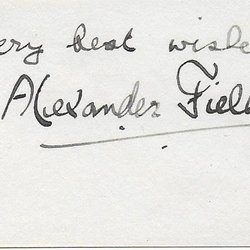 ery best wishe
Alexander Fiel